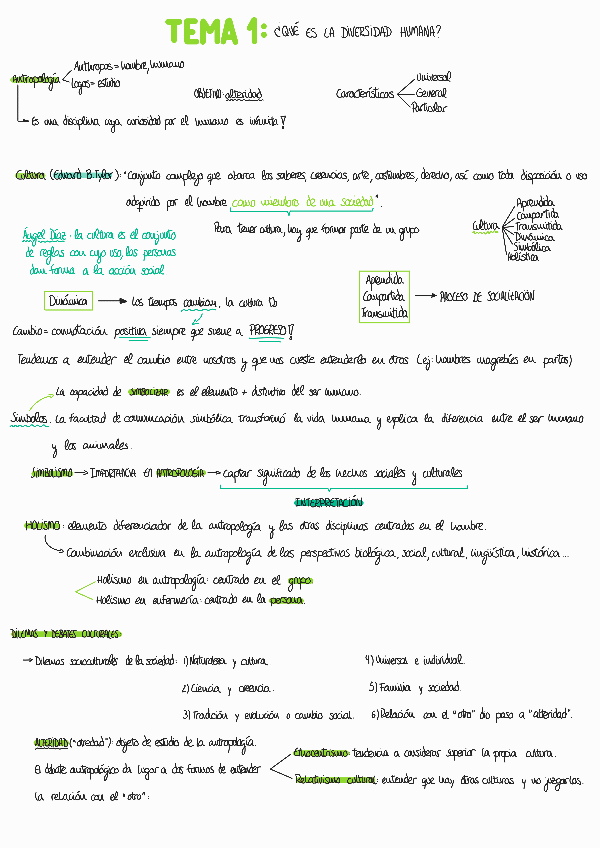 TEMA 1: ¿QUÉ ES LA DIVERSIDAD HUMANA?
Antropología
Anthropos = hombre, humano
Logos = estudio
OBJETIVO: alteridad
Características
Universal
General
Particular
Es una disciplina cuya curiosidad por el humano es infinita!
Cultura (Edward B. Tylor): "Conjunto complejo que abarca los saberes, creencias, arte, costumbres, derecho, así como toda disposición o uso
adquirido por el hombre como miembro de una sociedad".
Para tener cultura, hay que formar parte de un grupo
Cultura
Aprendida
Compartida
Transmitida
Dinámica
Simbólica
Holística
Ángel Díaz: la cultura es el conjunto
de reglas con cuyo uso, las personas
dan forma a la acción social
Dinámica → los tiempos cambian, la cultura tb
Aprendida
Compartida
Transmitida
→ PROCESO DE SOCIALIZACIÓN
Cambio = connotación positiva siempre que suene a PROGRESO!
Tendemos a entender el cambio entre nosotros y que nos cueste entenderlo en otros (ej: hombres magrebíes en partos)
La capacidad de SIMBOLIZAR es el elemento + distintivo del ser humano.
Símbolos. La facultad de comunicación simbólica transformó la vida humana y explica la diferencia entre el ser humano
y los animales.
SIMBOLISMO → IMPORTANCIA EN ANTROPOLOGÍA → captar significado de los hechos sociales y culturales
INTERPRETACIÓN
HOLISMO: elemento diferenciador de la antropología y las otras disciplinas centradas en el hombre.
Combinación exclusiva en la antropología de las perspectivas biológica, social, cultural, lingüística, histórica...
Holismo en antropología: centrado en el grupo
Holismo en enfermería: centrado en la persona.
DILEMAS Y DEBATES CULTURALES
→ Dilemas socioculturales de la sociedad: 1) Naturaleza y cultura.
4) Universal e individual.
2) Ciencia y creencia.
5) Familia y sociedad.
3) Tradición y evolución o cambio social.
6) Relación con el "otro" dio paso a "alteridad".
ALTERIDAD ("otredad"): objeto de estudio de la antropología.
El debate antropológico da lugar a dos formas de entender
la relación con el "otro":
Etnocentrismo: tendencia a considerar superior la propia cultura.
Relativismo cultural: entender que hay otras culturas y no juzgarlas.